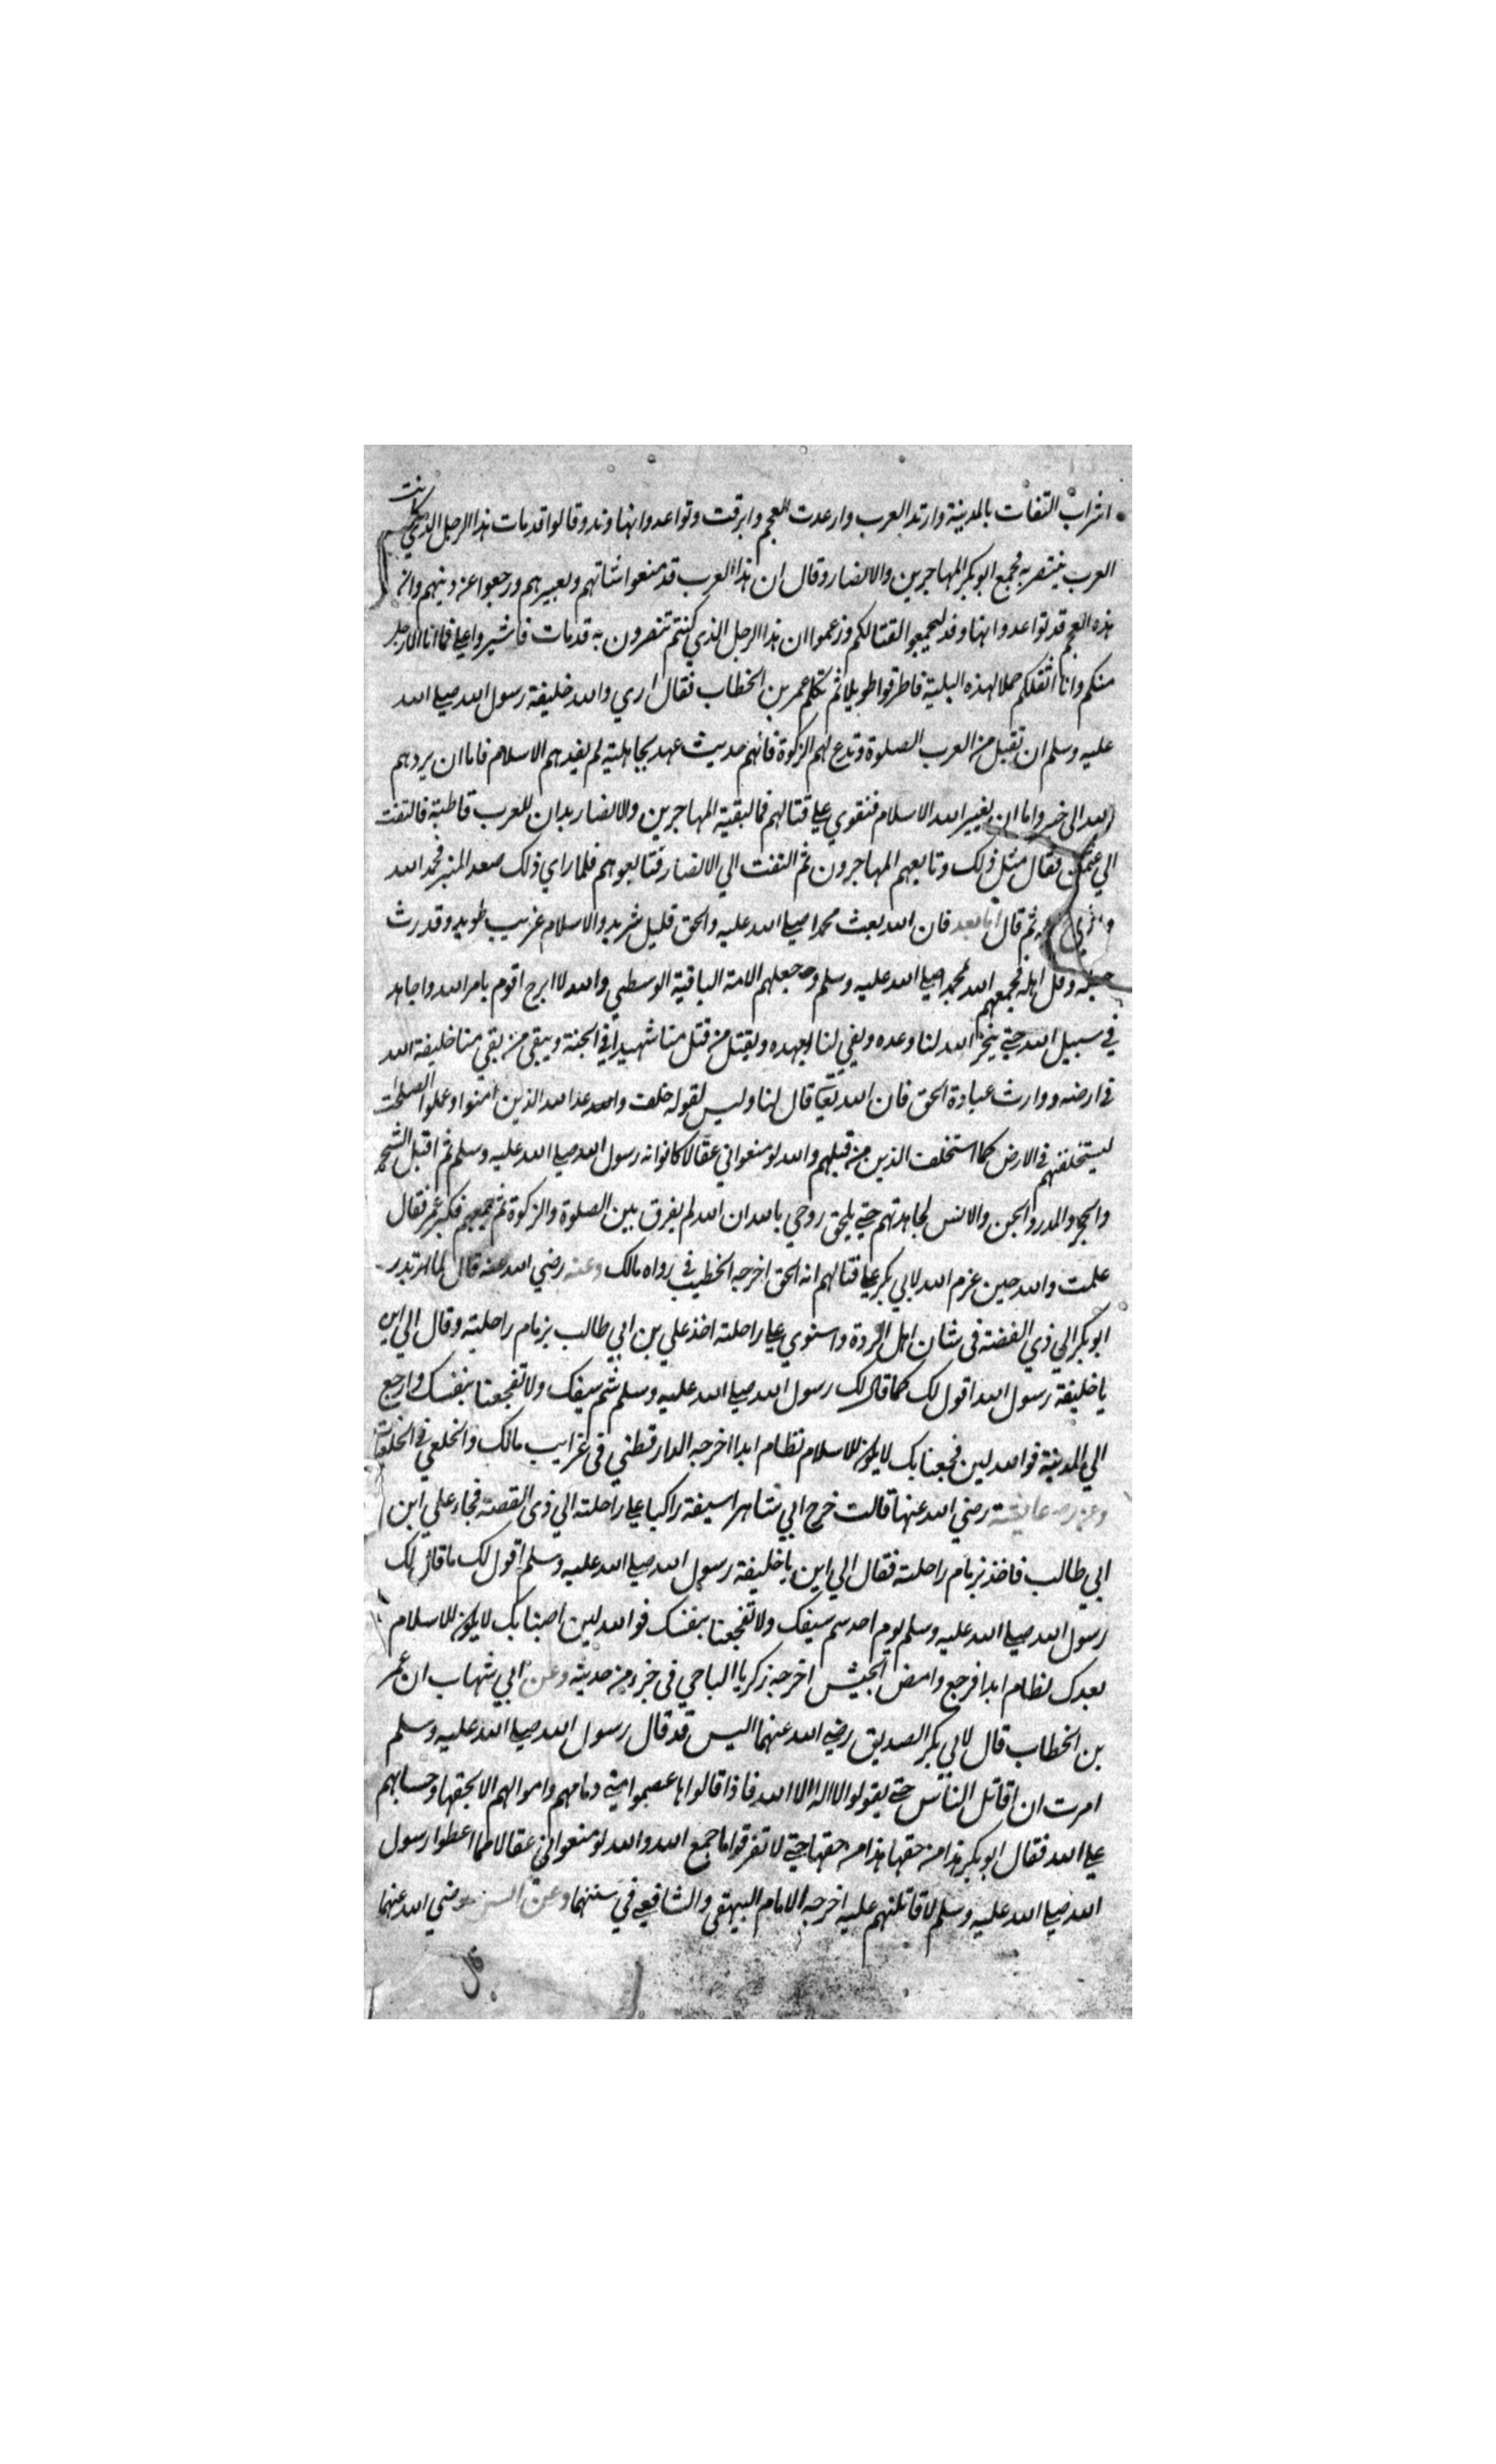 اشراب النفاق بالمدينة وارتد العرب وارعدت العجم وابرقت وتواعدوا نهاوند وقالوا قد مات هذا الرجل الذي كانت
العرب ينتصر به فجمع ابو بكر المهاجرين والانصار وقال ان هذا العرب قد منعوا شاتهم وبعيرهم ورجعوا عن دينهم وان
هذه العجم قد تواعدوا نهاوند ليجمعوا لقتالكم وزعموا ان هذا الرجل الذي كنتم تنصرون به قد مات فاشيروا علي فما انا الا رجل
منكم وانا اثقلكم حملا لهذه البلية فاطرقوا طويلا ثم تكلم عمر بن الخطاب فقال اري والله خليفة رسول الله صلي الله
عليه وسلم ان تقبل من العرب الصلوة وتدع لهم الزكوة فانهم حديث عهد بجاهلية لم يفدهم الاسلام فاما ان يردهم
الله الى خير واما ان يغيير الله الاسلام فنقوي علي قتالهم فما لبقية المهاجرين والانصار يدان للعرب قاطبة فالتفت
الي عثمان فقال مثل ذلك وتابعهم المهاجرون ثم التفت الي الانصار فتابعوهم فلما راي ذلك صعد المنبر فحمد الله
ثم قال اما بعد فان الله بعث محمدا صلي الله عليه والحق قليل شريد والاسلام غريب طريد وقد رث
حبله وقل اهله فجمعهم الله لمحمد صلي الله عليه وسلم وجعلهم الامة الباقية الوسطي والله لا ابرح اقوم بامر الله واجاهد
في سبيل الله حتي ينجز الله لنا وعده ويفي لنا بعهده ويقتل من قتل منا شهيدا في الجنة ويبقى من بقي منا خليفة الله
في ارضه ووارث عبادة الحق فان الله تعالي قال لنا وليس لقوله خلف وعد الله الذين امنوا وعملوا الصلحت
ليستخلفنهم في الارض كما استخلف الذين من قبلهم والله لو منعواني عقالا كانوا رسول الله صلي الله عليه وسلم ثم اقبل الشجر
والحجر والمدر والجن والانس لجاهدتهم حتي يلحق روحي بالله ان الله لم يفرق بين الصلوة والزكوة ثم جمعهم فكبر عمر فقال
علمت والله حين عزم الله لابي بكر علي قتالهم انه الحق اخرجه الخطيب في رواه مالك وعنه رضي الله عنه قال لما
ابو بكر الي ذي الفضة في شان اهل الردة واستوي علي راحلته اخذ علي بن ابي طالب بزمام راحلته وقال الي اين
يا خليفة رسول الله اقول لك كما قال لك رسول الله صلي الله عليه وسلم شم سيفك ولا تفجعنا بنفسك وارجع
الي المدينة فوالله لين فجعنا بك لا يكون للاسلام نظام ابدا اخرجه الدارقطني في غرايب مالك والخلعي في الخلعيات
وعن عايشة رضي الله عنها قالت خرج ابي شاهرا سيفه راكبا علي راحلته الي ذى القصة فجاء علي ابن
ابي طالب فاخذ بزمام راحلته فقال الي اين يا خليفة رسول الله صلي الله عليه وسلم اقول لك ما قال لك
رسول الله صلي الله عليه وسلم يوم احد شم سيفك ولا تفجعنا بنفسك فوالله لين اصبنا بك لا يكون للاسلام
بعدك نظام ابدا فرجع وامض الجيش اخرجه زكريا الباجي في جزء من حديثه وعن ابي شهاب ان عمر
بن الخطاب قال لابي بكر الصديق رضي الله عنهما اليس قد قال رسول الله صلي الله عليه وسلم
امرت ان اقاتل الناس حتي يقولوا لا اله الا الله فاذا قالوا ها عصموا مني دماءهم واموالهم الا بحقها وحسابهم
علي الله فقال ابو بكر هذا من حقها هذا من حقها حتي لا تفرقوا ما جمع الله والله لو منعواني عقالا مما اعطوا رسول
الله صلي الله عليه وسلم لاقاتلنهم عليه اخرجه الامام البيهقي والشافعي في سننهما وعن رضي الله عنهما
قال